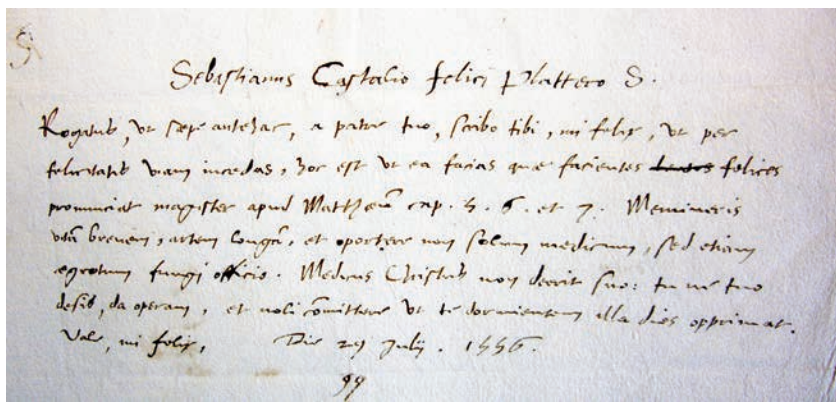 Sebastianus Castalio Felici Plattero S.
Rogatus, ut sæpe antehac, a patre tuo, scribo tibi, mi felix, ut per
felicitatis viam incedas, hoc est ut ea facias quæ facientes felices
pronunciat magister apud Matthæū cap. 5. 6. et 7. Memineris
vitā brevem, artem longā, et oportere non solum medicum, sed etiam
ægrotum fungi officio. Medicus Christus non deerit suo: tu ne tuo
desis, da operam, et noli cōmittere ut te dormientem illa dies opprimat.
Vale, mi felix, Die 29 Julij. 1556.
99